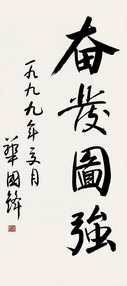 奮發圖強
一九九九年五月
華國鋒